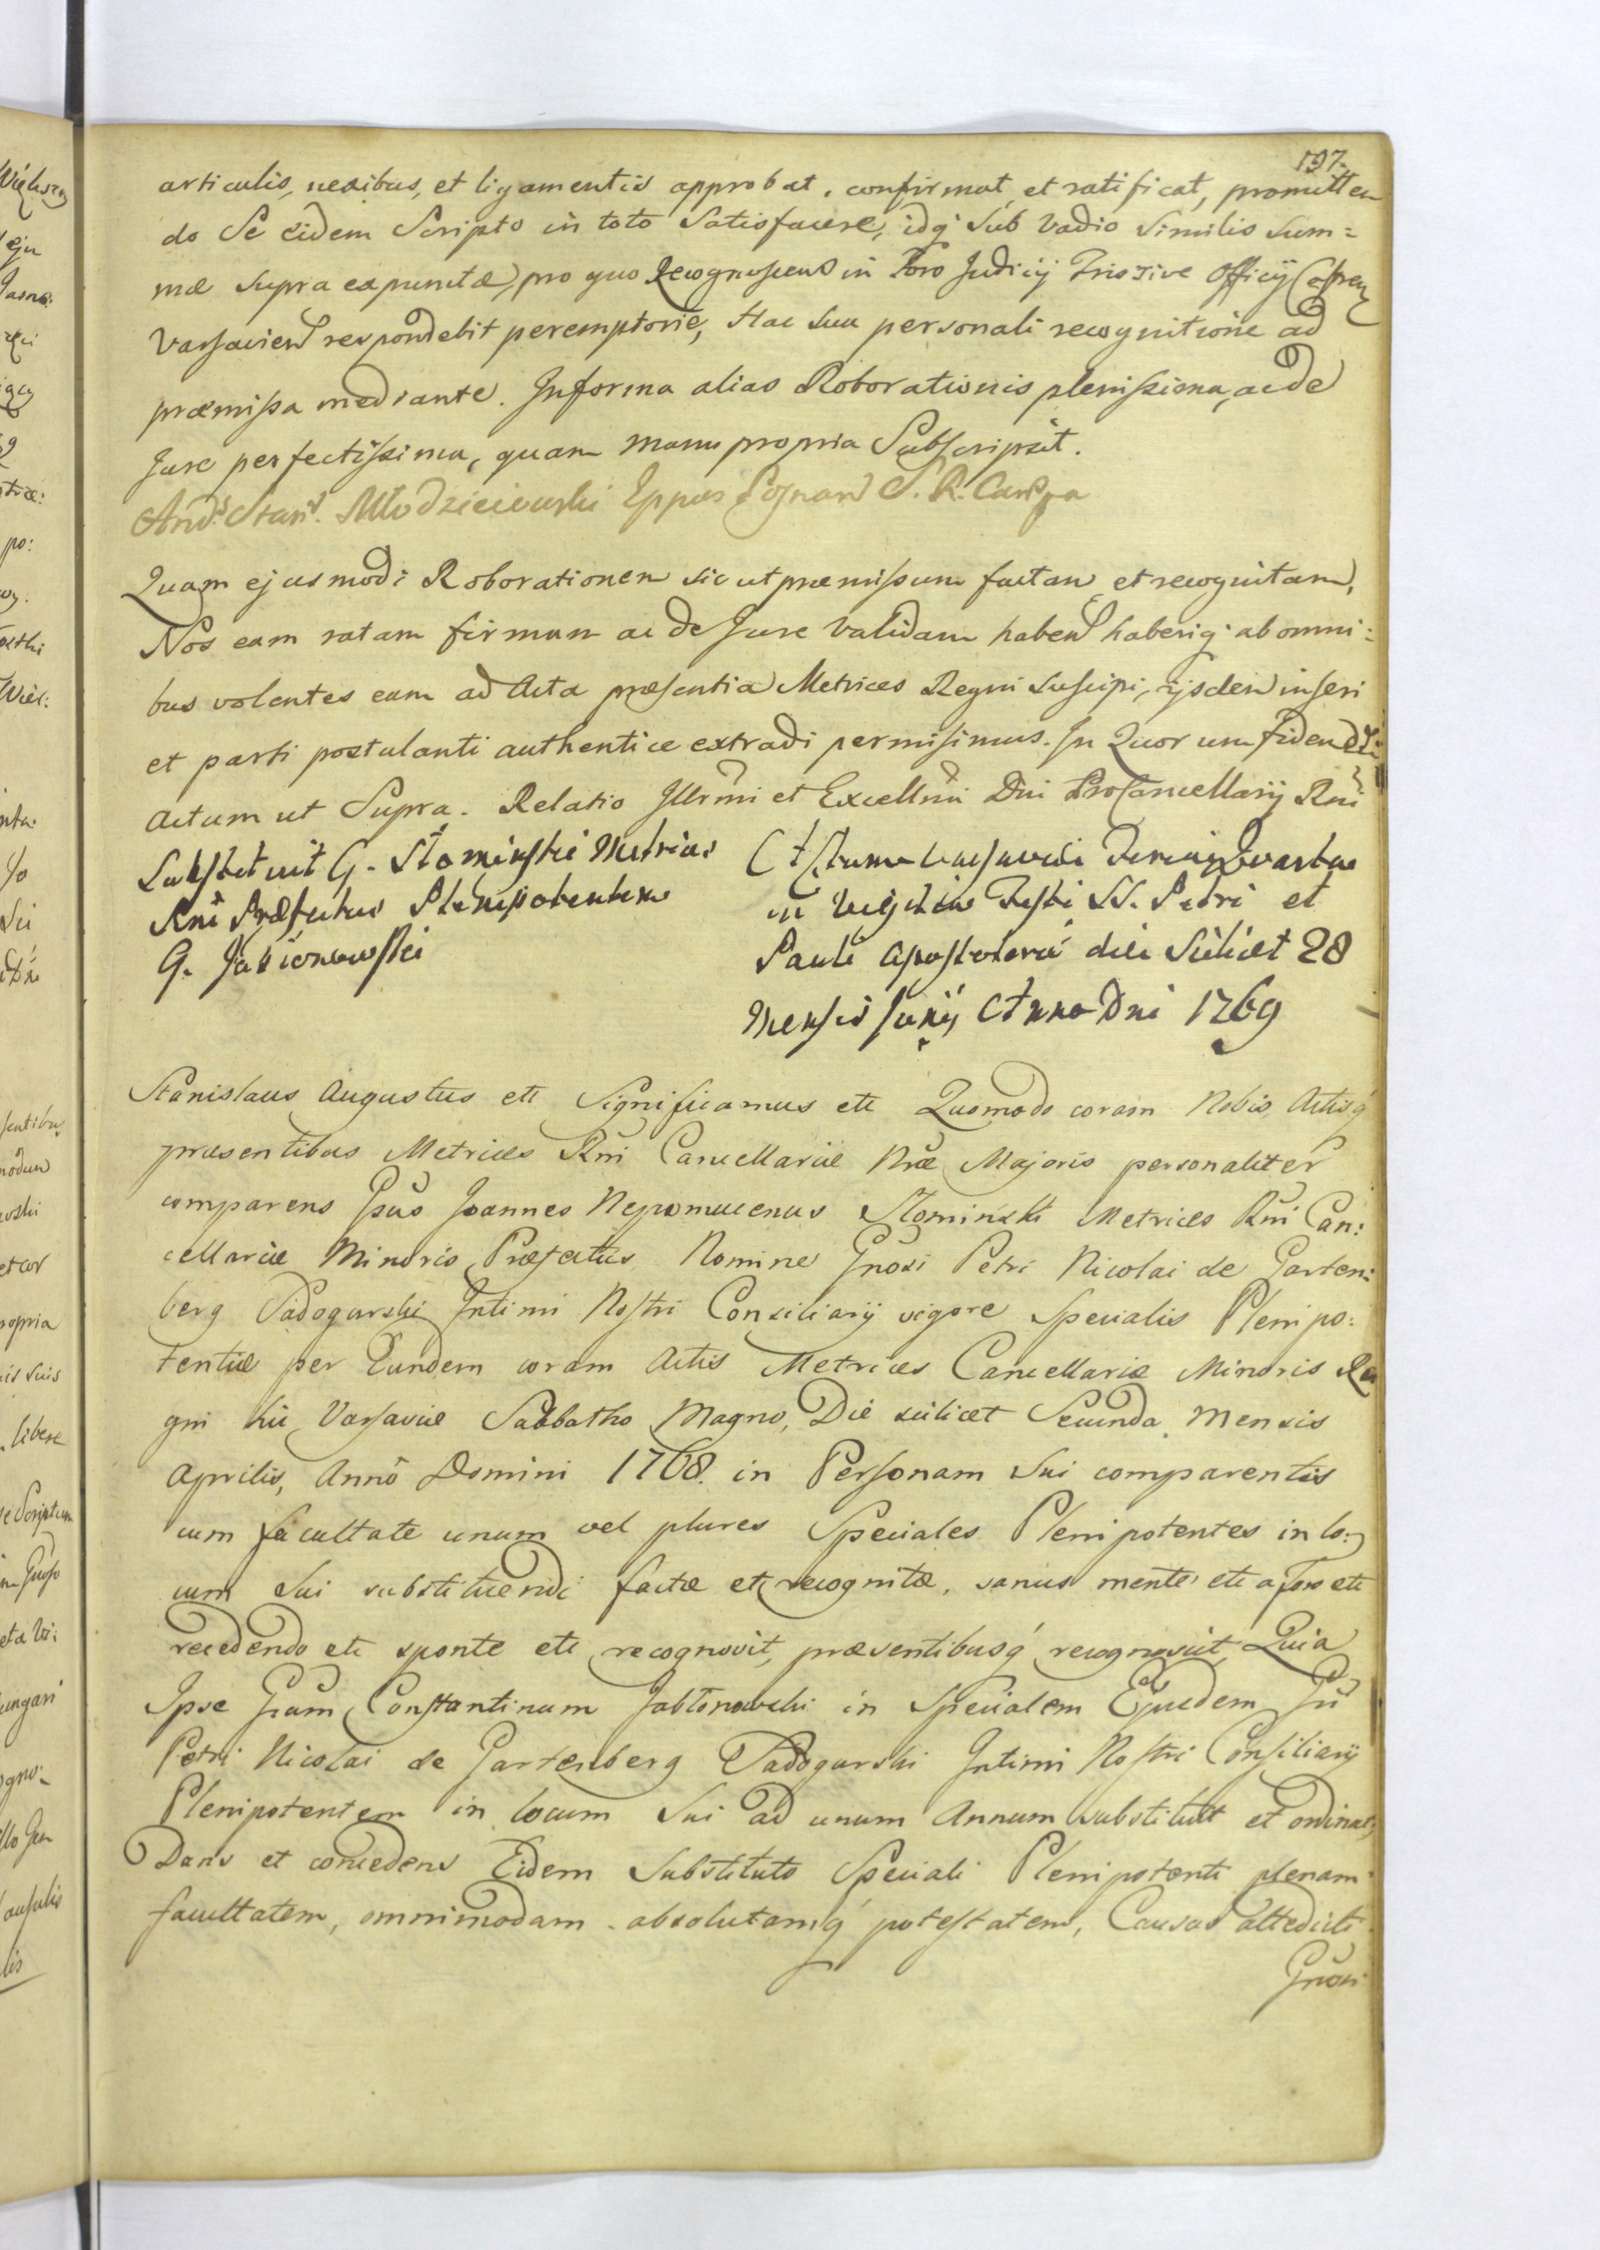 197.
articulis, nexibus, et ligamentis approbat, confirmat, et ratificat, promitten
do Se eidem Scripto in toto Satisfacere, idq́ sub vadio Similis Sum=
mæ Supra expunctæ, pro quo Recognoscens in Foro Judicij Tris sive Officij Castren
Varsavien respondebit peremptorie, Hac sua personali recognitione ad
præmissa mediante. Informa alias Roborationis plenissima, ac de
Jure perfectissima, quam manu propria Subscripsit.
Andr: Stan: Młodzieiowski Eppus Poznan S. R. Canc
Quam ejusmodi Roborationem sic ut præmissum factam et recognitam,
Nos eam ratam firmam ac de Jure validam haben haberiq́ ab omni=
bus volentes eam ad Acta præsentia Metrices Regni Suscipi, ijsdem inseri
et parti postulanti authentice extradi permisimus. In Quorum fidem
Actum ut Supra. Relatio Illrmi et Excellmi Dni ProCancellarij Rni
Substituit G. Słominski Metrices
Rni Præfectus Plenipotentem
G. Jabłonowski
Actum Varsaviæ Feria Quarta
in Vigilia Festi SS. Petri et
Pauli Apostolorū die Scilicet 28
Mensis Junij Anno Dni 1769
Stanislaus Augustus etc Significamus etc Quomodo coram Nobis Actisq́
præsentibus Metrices Rni Cancellariæ Nræ Majoris personaliter
comparens Gsus Joannes Nepomucenus Słominski Metrices Rni Can:
cellariæ Minoris Præfectus Nomine Gnosi Petri Nicolai de Garten:
berg Sadogurski Intimi Nostri Consiliarij vigore Specialis Plenipo:
tentiæ per Eundem coram Actis Metrices Cancellariæ Minoris Re
gni hic Varsaviæ Sabbatho Magno, Die scilicet Secunda Mensis
Aprilis, Annô Domini 1768. in Personam Sui comparentis
cum facultate unum vel plures Speciales Plenipotentes in lo:
cum Sui substituendi factæ et recognitæ, sanus mente etc a foro etc
recedendo etc sponte etc recognovit, præsentibusq́ recognoscit, Quia
Ipse Gsum Constantinum Jabłonowski in Specialem Ejusdem Gsi
Petri Nicolai de Gartenberg Sadogurski Intimi Nostri Consiliarij
Plenipotentem in locum Sui ad unum Annum substituit et ordinat,
Dans et concedens Eidem Substituto Speciali Plenipotenti plenam
facultatem, omnimodam absolutamq́ potestatem, Causas attedicti
Gnosi